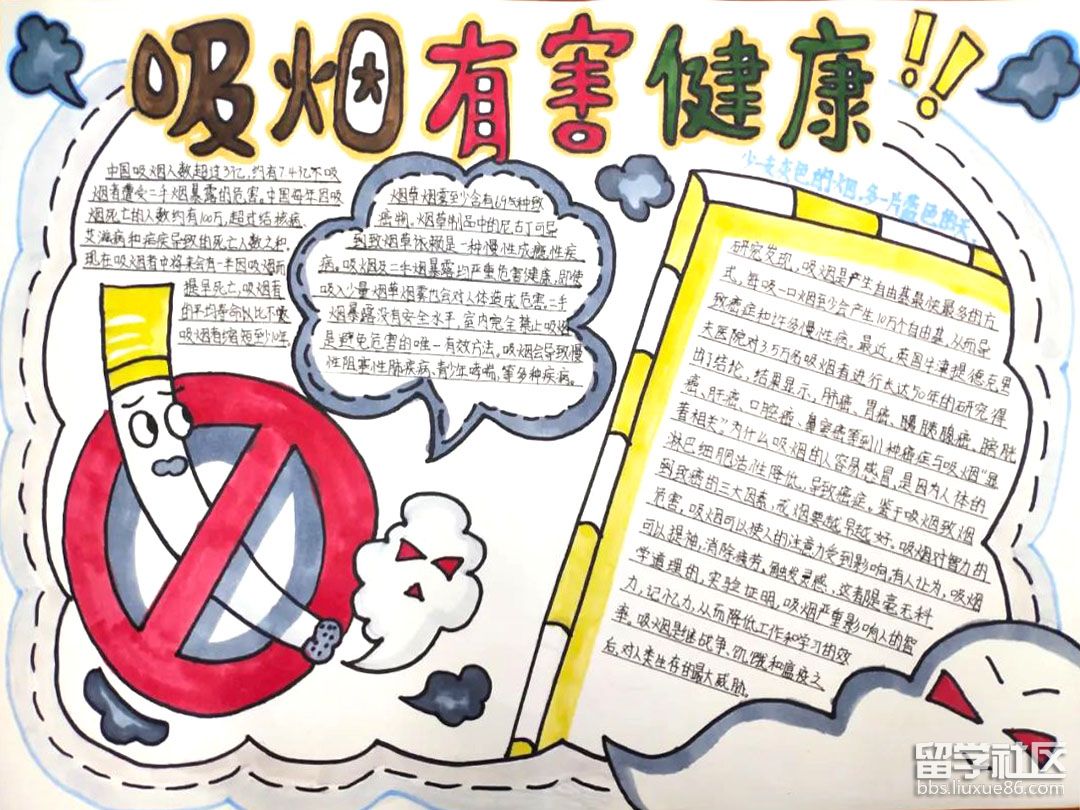 吸烟有害健康!!
少一支灰色的烟,多一片蓝色的天。
中国吸烟人数超过3亿,约有7.4亿不吸
烟者遭受二手烟暴露的危害。中国每年因吸
烟死亡的人数约有100万,超过结核病、
艾滋病和疟疾导致的死亡人数之和,
现在吸烟者中将来会有一半因吸烟而
提早死亡,吸烟者
的平均寿命比不
吸烟者缩短至少10年
烟草烟雾至少含有69种致
癌物,烟草制品中的尼古丁可导
到致烟草依赖是一种慢性成瘾性疾
病。吸烟及二手烟暴露均严重危害健康,即使
吸入少量烟草烟雾也会对人体造成危害二手
烟暴露没有安全水平,室内完全禁止吸烟
是避免危害的唯一有效方法。吸烟会导致慢
性阻塞性肺疾病,青少年哮喘,等多种疾病。
研究发现,吸烟是产生自由基最快最多的方
式,每吸一口烟至少会产生10万个自由基,从而导
致癌症和许多慢性病。最近,英国牛津提德克里
夫医院对3.5万名吸烟者进行长达50年的研究得
出了结论,结果显示,肺癌、胃癌、胰腺癌、膀胱
癌、肝癌、口腔癌、鼻窦癌等到11种癌症与吸烟"显
著相关"。为什么吸烟的人容易感冒,是因为人体的
淋巴细胞活性降低,导致癌症。鉴于吸烟致烟
到致癌的三大因素,戒烟要越早越好。吸烟对智力的
危害,吸烟可以使人的注意力受到影响,有人认为,吸烟
可以提神,消除疲劳,触发灵感,这都是毫无科
学道理的,实验证明,吸烟严重影响人的智
力,记忆力,从而降低工作和学习的效
率。吸烟是继战争、饥饿和瘟疫之
后,对人类生存的最大威胁。
留学社区
bbs.liuxue86.com